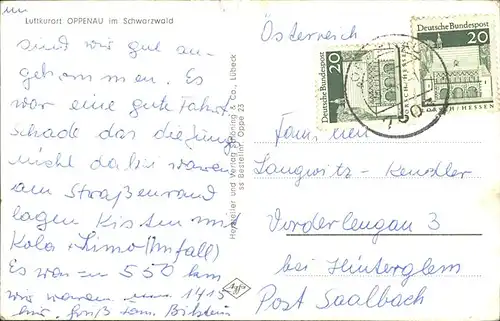 Luftkurort OPPENAU im Schwarzwald
sind wir gut an-
gekommen. Es
war eine gute Fahrt
Schade das die Jungs
nicht dabei waren
am Straßenrand
lagen Kisten mit
Kola + Limo (Unfall)
Es waren 550 km
wir waren 1415
hier. Gruß Fam. Bilstein
Hersteller und Verlag Schöning & Co., Lübeck
ss Bestellnr. Oppe 23
Agfa
Österreich
Deutsche Bundespost
20
LORSCH/HESSEN
Deutsche Bundespost
20
LORSCH/HESSEN
Familien
Langwitz - Kendler
Vorderlengau 3
bei Hinterglem
Post Saalbach